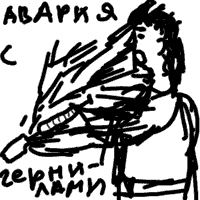 АВАРИЯ
С
ЧЕРНИ-
ЛАМИ